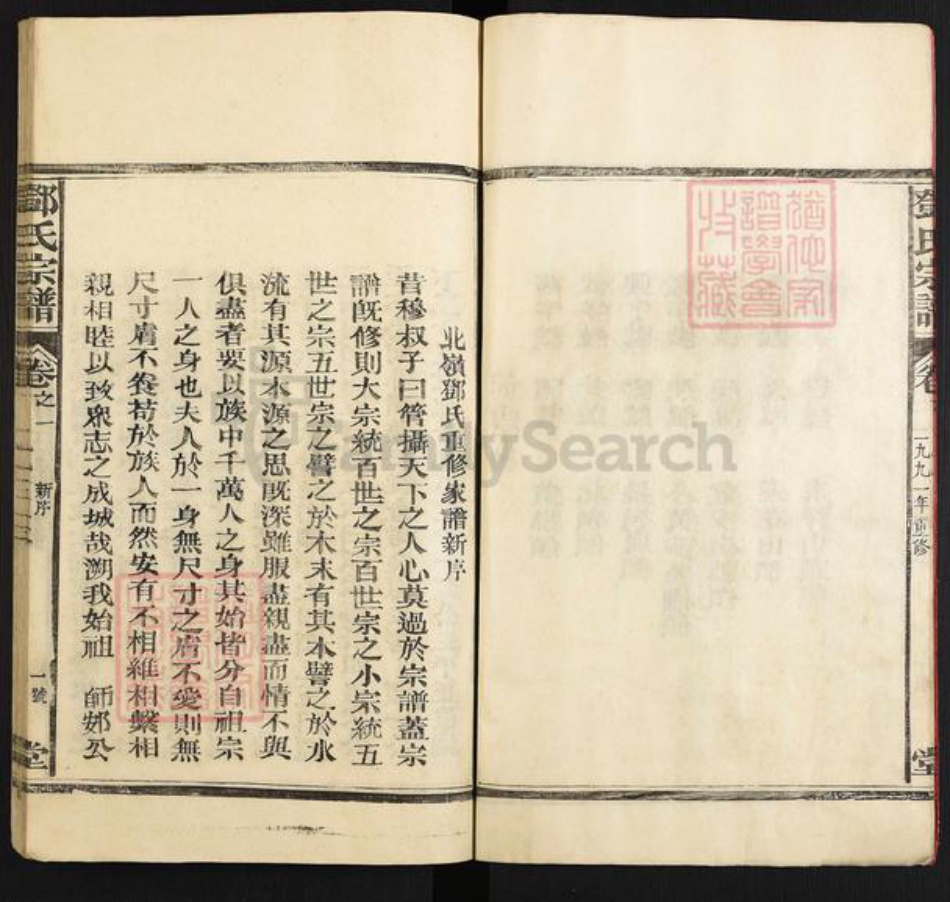 鄧氏宗譜
卷
一九九一年重修
堂
猶他家
譜學會
收藏
北嶺鄧氏重修家譜新序
昔穆叔子曰管攝天下之人心莫過於宗譜蓋宗
譜旣修則大宗統百世之宗百世宗之小宗統五
世之宗五世宗之譬之於木末有其本譬之於水
流有其源木源之思旣深雖服盡親盡而情不與
俱盡者要以族中千萬人之身其始皆分自祖宗
一人之身也夫人於一身無尺寸之膚不愛則無
尺寸膚不養苟於族人而然安有不相維相繫相
親相睦以致衆志之成城哉溯我始祖 師邺公
鄧氏宗譜
卷之一
新序
一號
堂
FamilySearch